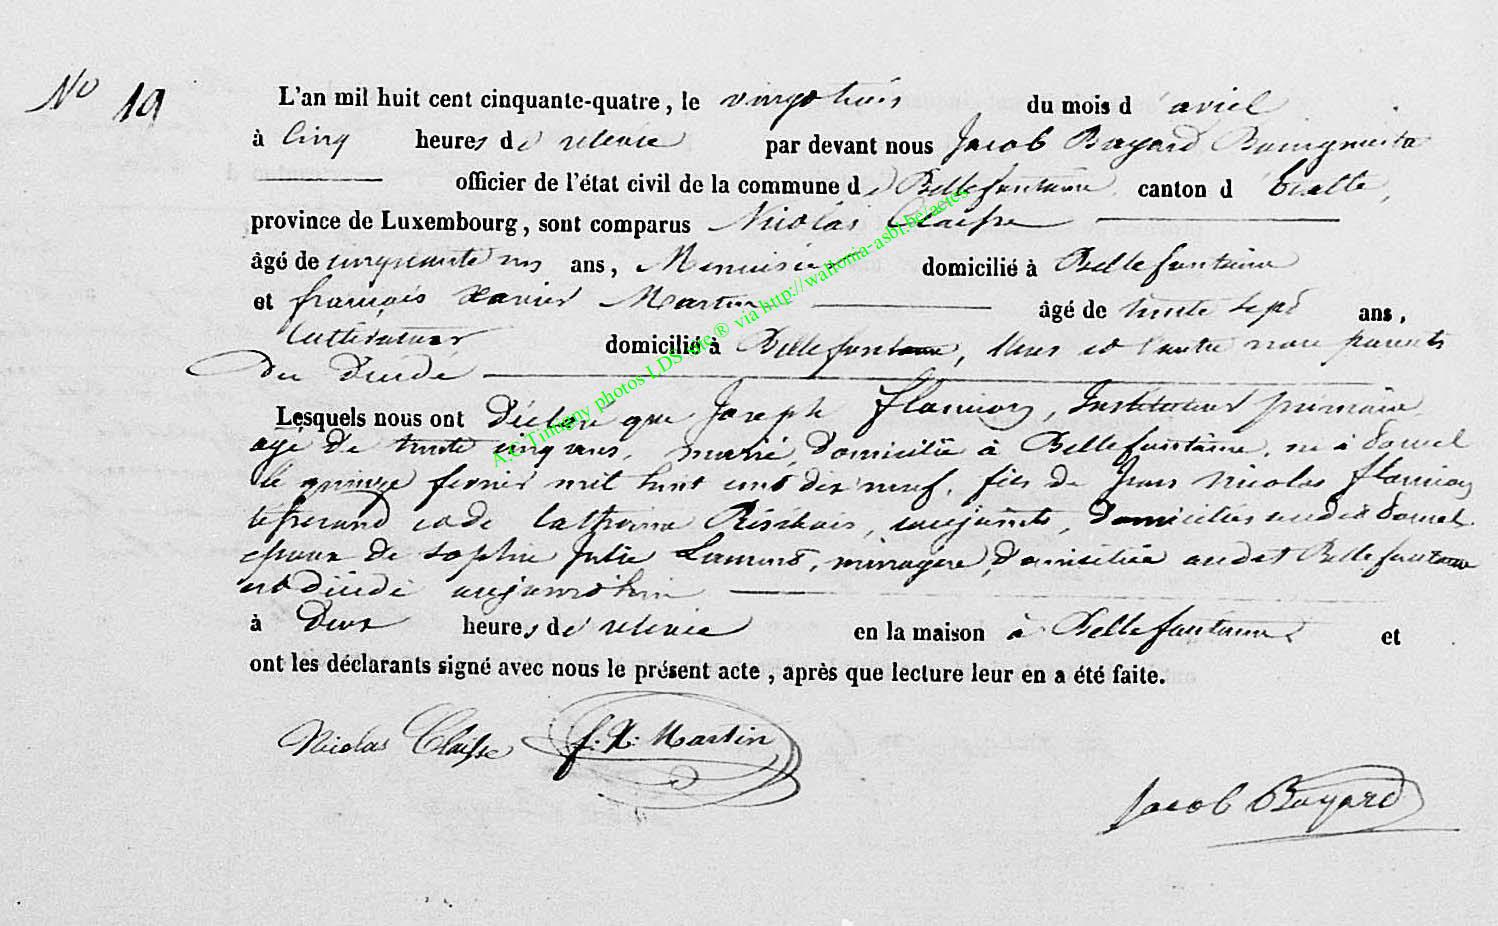 No 19
L'an mil huit cent cinquante-quatre, le vingt trois du mois d'avril
à cinq heures de relevée par devant nous Jacob Bayard Bourgmestre
officier de l'état civil de la commune de Bellefontaine canton d'Etalle,
province de Luxembourg, sont comparus Nicolas Claisse
âgé de cinquante ans, Menuisier domicilié à Bellefontaine
et françois Xavier Martin âgé de trente sept ans,
cultivateur domicilié à Bellefontaine, l'un et l'autre non parents
du décédé
Lesquels nous ont déclaré que Joseph flamion, Instituteur primaire
agé de trente cinq ans, marié, domicilié à Bellefontaine, né à
le quinze fevrier mil huit cent dix neuf, fils de Jean Nicolas flamion
et de Catherine conjoints, domiciliés audit
epoux de Sophie Julie ménagère, domiciliée audit Bellefontaine
est décédé aujourd'hui
à Deux heures de relevée en la maison à Bellefontaine et
ont les déclarants signé avec nous le présent acte, après que lecture leur en a été faite.
Nicolas Claisse f. X. Martin
Jacob Bayard
A.C Tintigny photos LDS site ® via http://wallonia-asbl.be/actes